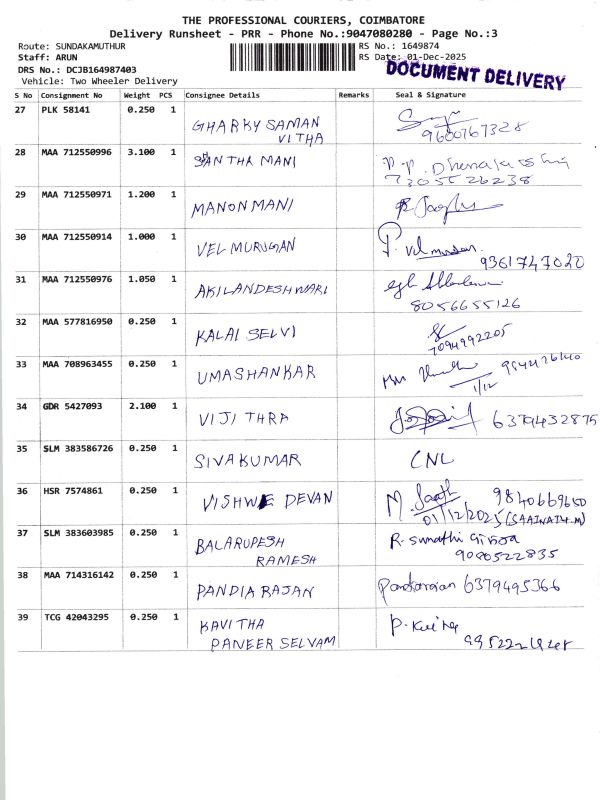 THE PROFESSIONAL COURIERS, COIMBATORE
Delivery Runsheet - PRR - Phone No.:9047080280 - Page No.:3
Route: SUNDAKAMUTHUR RS No.: 1649874
Staff: ARUN RS Date: 01-Dec-2025
DRS No.: DCJB164987403 DOCUMENT DELIVERY
Vehicle: Two Wheeler Delivery
S No Consignment No Weight PCS Consignee Details Remarks Seal & Signature
27 PLK 58141 0.250 1 GHARKY SAMAN
VITHA 9600767328
28 MAA 712550996 3.100 1 SANTHA MANI
7305526238
29 MAA 712550971 1.200 1 MANON MANI
30 MAA 712550914 1.000 1 VEL MURUGAN
9361747020
31 MAA 712550976 1.050 1 AKILANDESHWARI
8056655126
32 MAA 577816950 0.250 1 KALAI SELVI
7094992205
33 MAA 708963455 0.250 1 UMASHANKAR
1/12
34 GDR 5427093 2.100 1 VIJI THRA 6379432875
35 SLM 383586726 0.250 1 SIVAKUMAR CNL
36 HSR 7574861 0.250 1 VISHWE DEVAN M. 9840669650
01/12/2025 (SAAINATH.M)
37 SLM 383603985 0.250 1 BALARUPESH R. Sumathi
RAMESH 9080522835
38 MAA 714316142 0.250 1 PANDIA RAJAN Pandiarajan 6379495366
39 TCG 42043295 0.250 1 KAVITHA
PANEER SELVAM